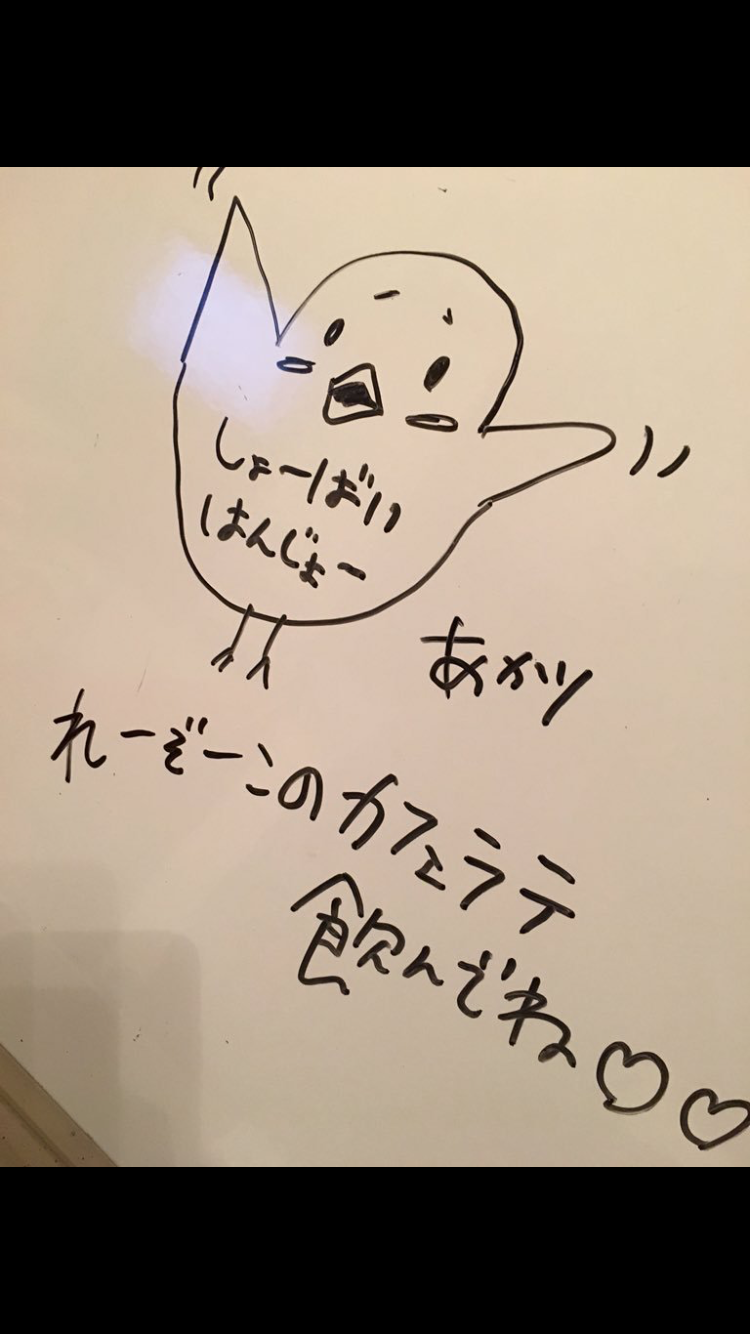 しょーばい
はんじょー
あかり
れーぞーこのカフェラテ
飲んでね♡♡